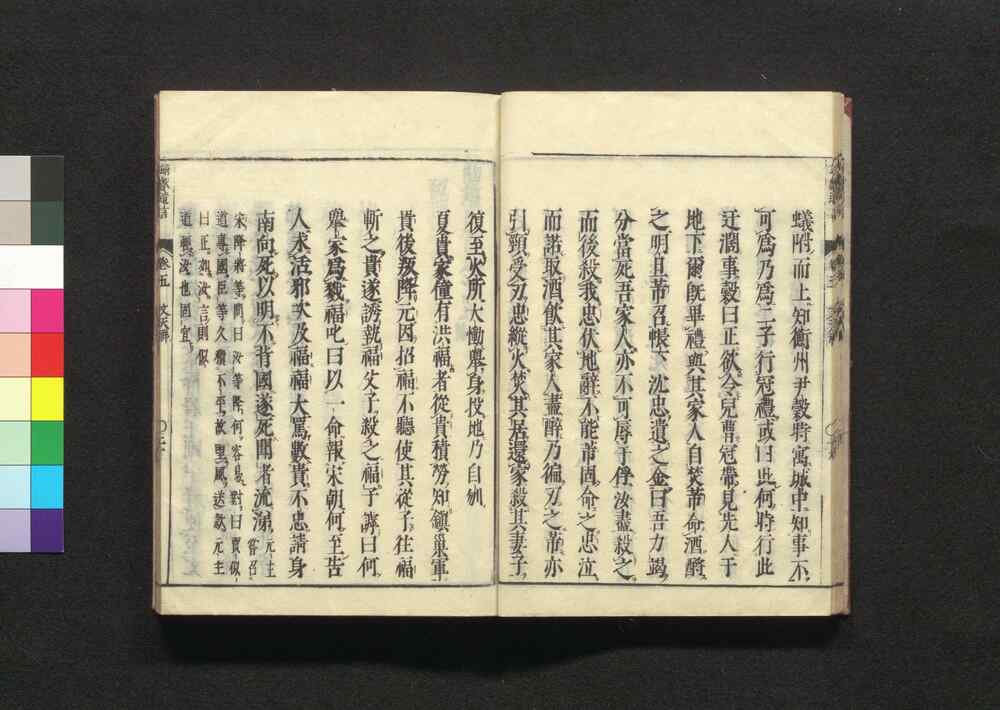 蟻附而上知衡州尹穀時寓城中知事不
可爲乃爲二子行冠禮或曰此何時行此
迂濶事穀曰正欲令兒曹冠帶見先人于
地下爾既畢禮與其家人自焚芾命酒酹
之明且芾召帳下沈忠遺之金曰吾力竭
分當死吾家人亦不可辱于俘汝盡殺之
而後殺我忠伏地辭不能芾固命之忠泣
而諾取酒飲其家人盡醉乃徧刃之芾亦
引頸受刃忠縱火焚其居還家殺其妻子
復至火所大慟舉身投地乃自刎
夏貴家僮有洪福者從貴積勞知鎮巢軍
貴後叛降元因招福不聽使其從子往福
斬之貴遂誘執福父子殺之福子謼曰何
舉家爲戮福叱曰以一命報宋朝何至告
人求活邪次及福福大罵數貴不忠請身
南向死以明不背國遂死聞者流涕 元主嘗召
宋降將等問曰汝等降何容易對曰賈似
道專國臣等久積不平故望風送款元主
曰正如汝言則似
道輕汝也固宜
卷五